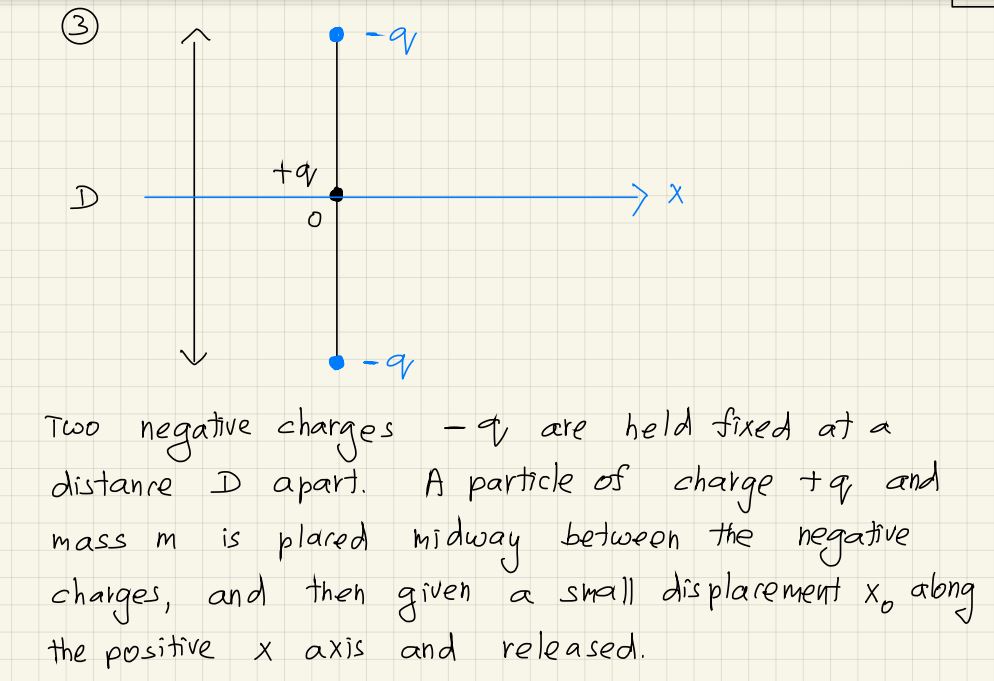 ③
-q
+q
D
x
0
-q
Two negative charges -q are held fixed at a
distance D apart. A particle of charge +q and
mass m is placed midway between the negative
charges, and then given a small displacement x₀ along
the positive x axis and released.